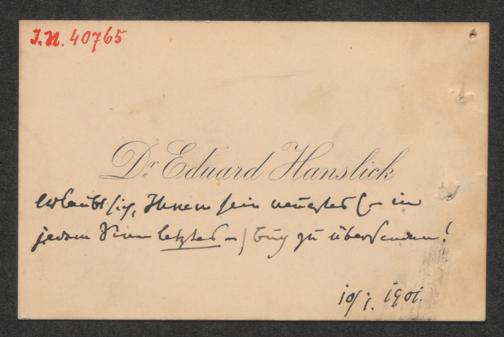 I.N. 40765
Dr Eduard Hanslick
erlaubt sich, Ihnen sein neuestes (– in
jedem Sinn letztes –) Buch zu übersenden!
10/1. 1901.